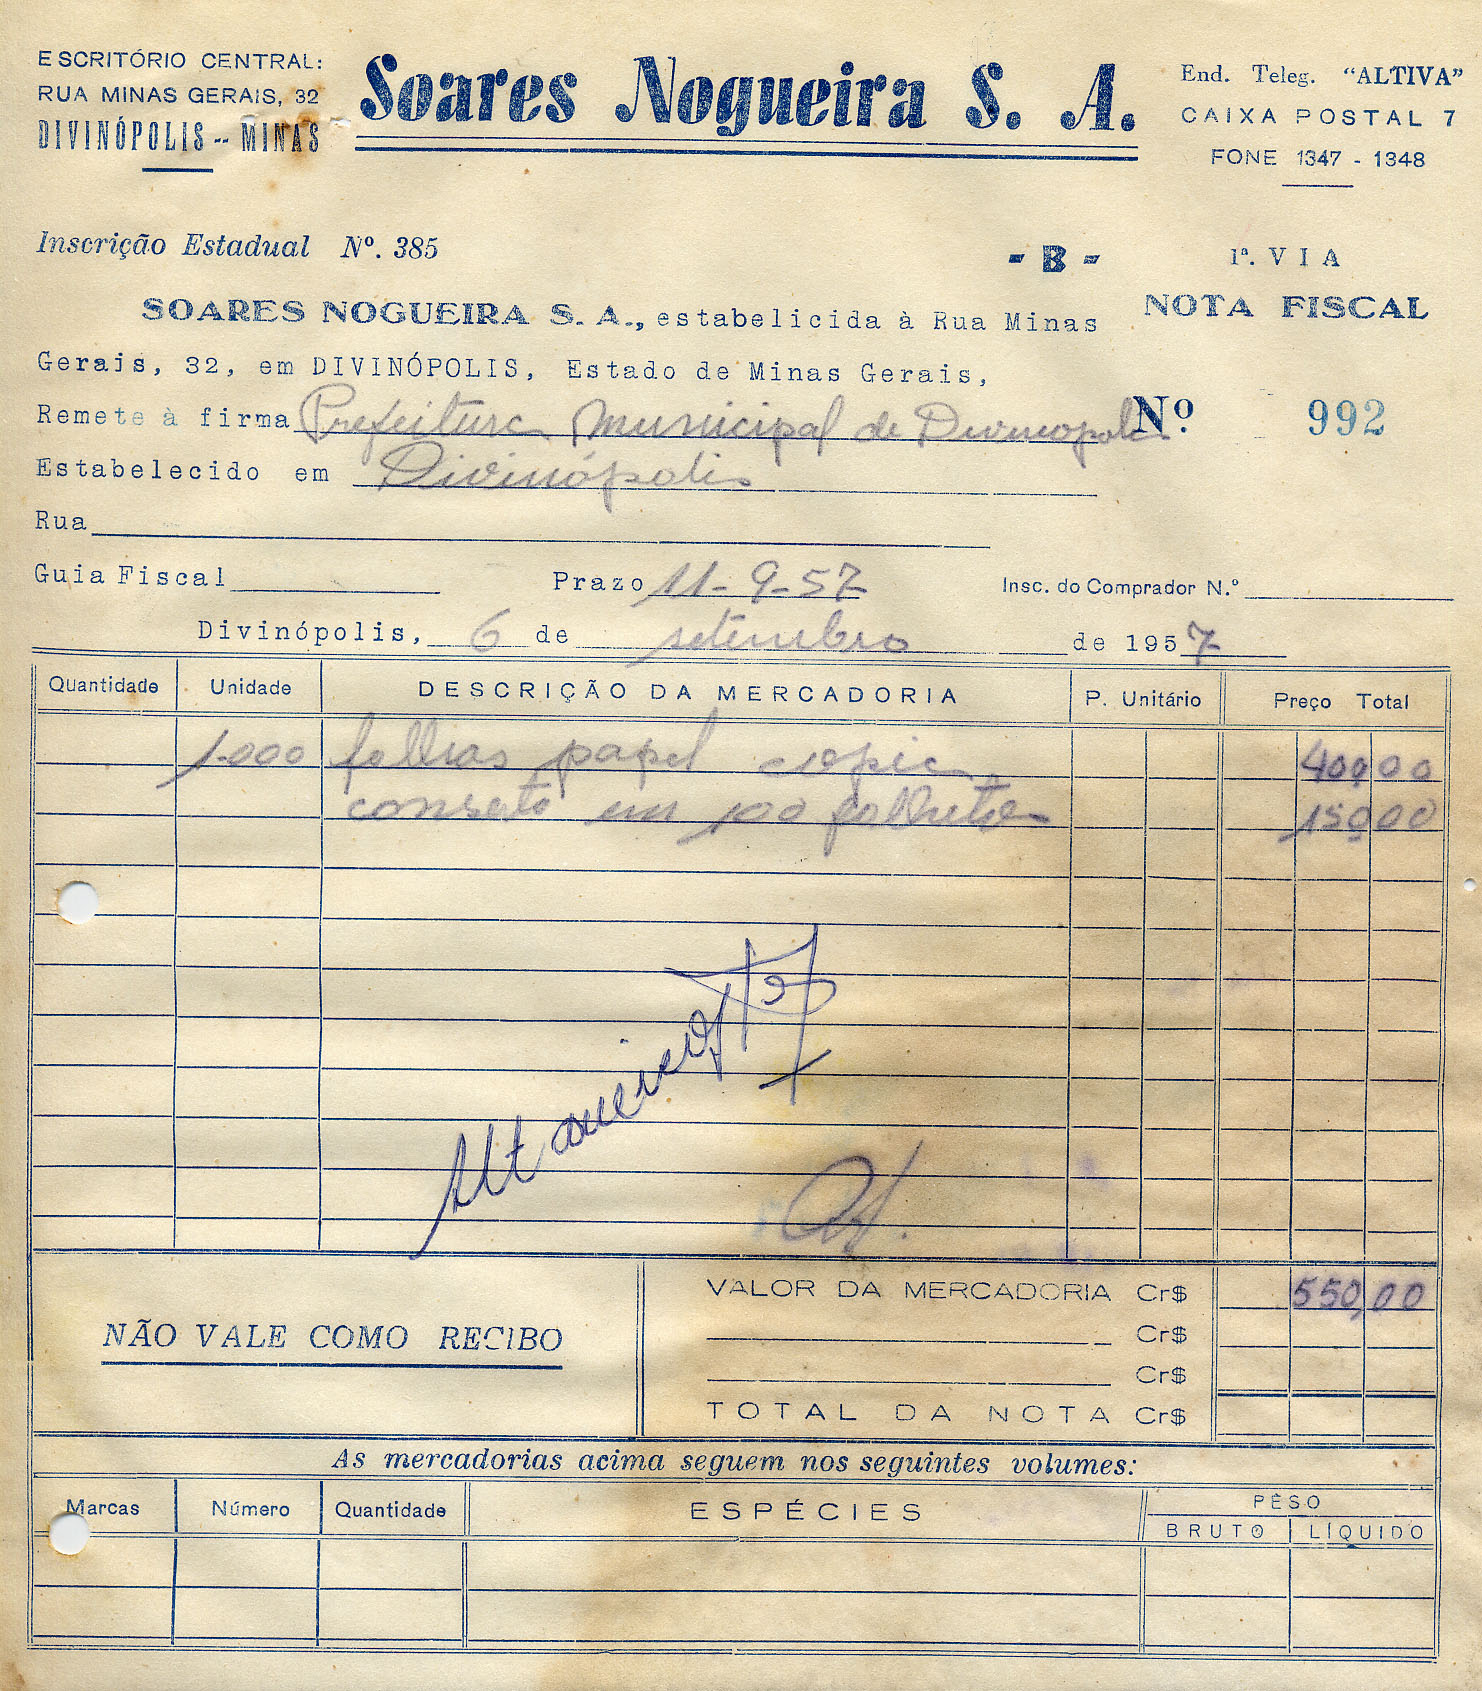 ESCRITÓRIO CENTRAL:
RUA MINAS GERAIS, 32
DIVINÓPOLIS -- MINAS
Soares Nogueira S. A.
End. Teleg. "ALTIVA"
CAIXA POSTAL 7
FONE 1347 - 1348
Inscrição Estadual Nº. 385
- B -
1ª. VIA
NOTA FISCAL
SOARES NOGUEIRA S. A., estabelicida à Rua Minas
Gerais, 32, em DIVINÓPOLIS, Estado de Minas Gerais,
Remete à firma Prefeitura Municipal de Divinopolis
Nº. 992
Estabelecido em Divinópolis
Rua
Guia Fiscal Prazo 11-9-57 Insc. do Comprador N.º
Divinópolis, 6 de setembro de 1957
Quantidade Unidade DESCRIÇÃO DA MERCADORIA P. Unitário Preço Total
1.000 folhas papel copia 400,00
conserto em 100 folhetos 150,00
VALOR DA MERCADORIA Cr$ 550,00
Cr$
NÃO VALE COMO RECIBO
Cr$
TOTAL DA NOTA Cr$
As mercadorias acima seguem nos seguintes volumes:
Marcas Número Quantidade ESPÉCIES PÊSO
BRUTO LÍQUIDO